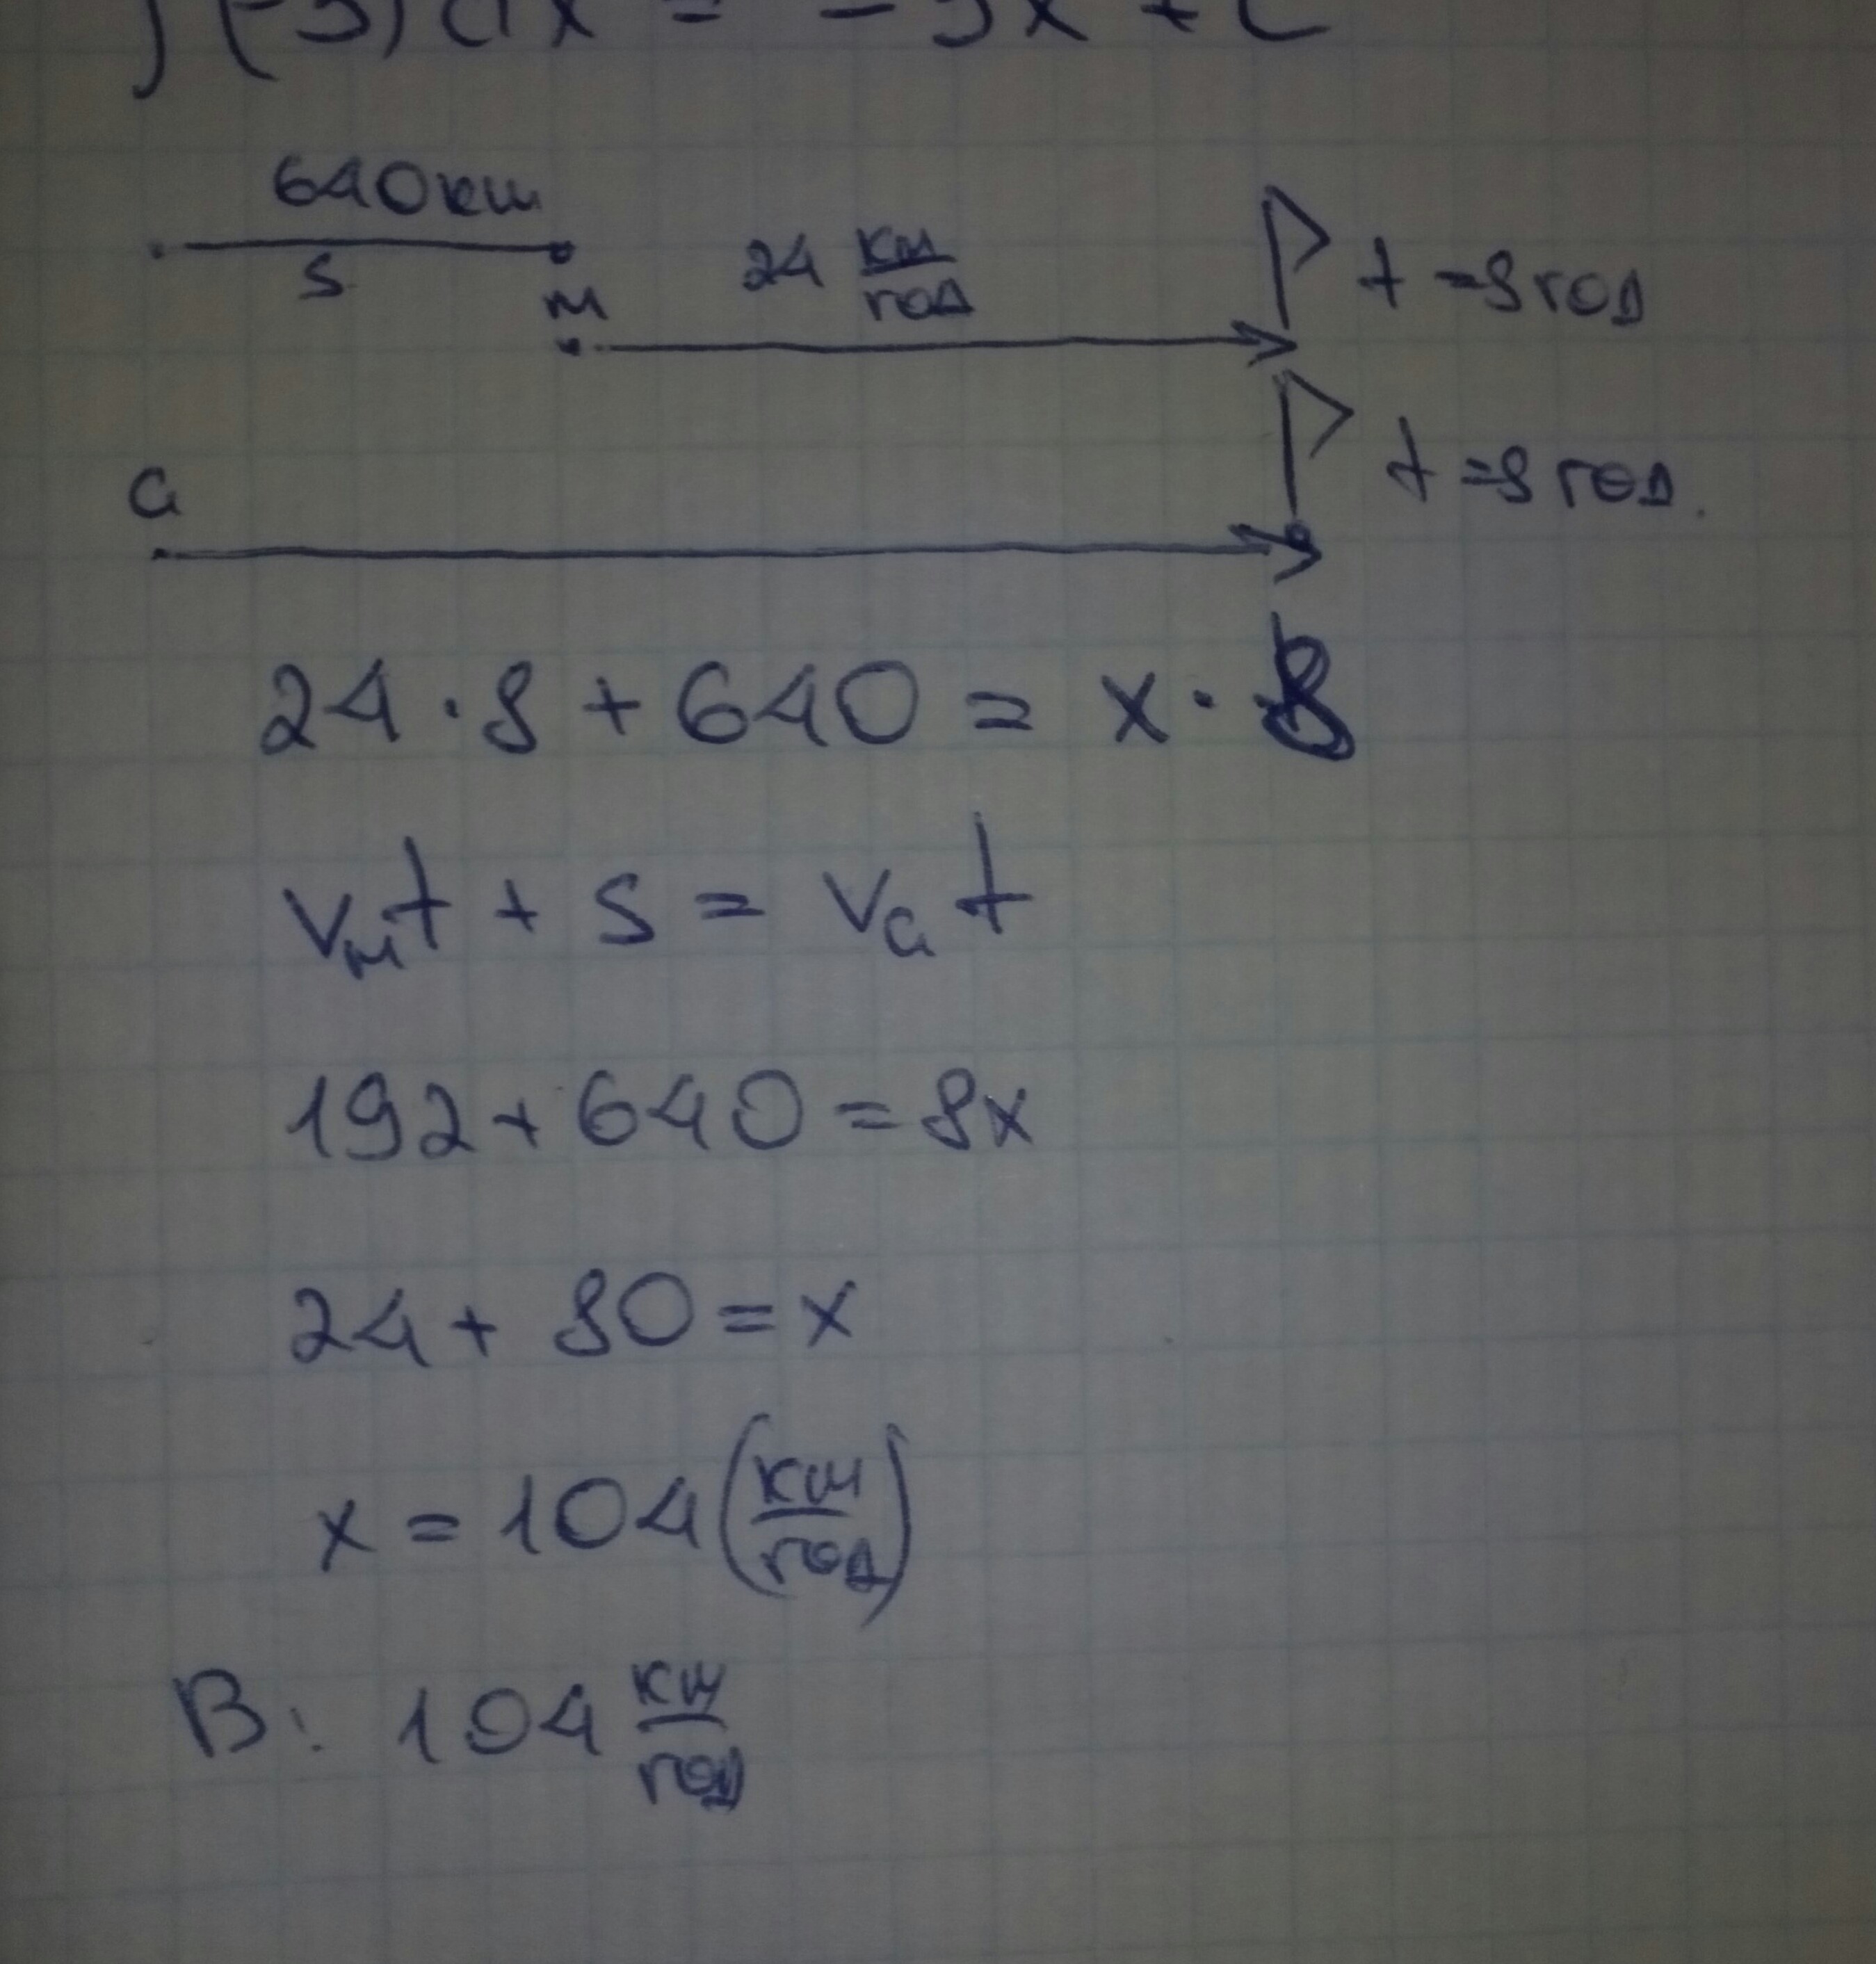 ∫(-3)dx = -3x + C
640 км
S
м
24 км/год
t = 8 год
а
t = 8 год.
24 · 8 + 640 = x · 8
Vмt + S = Vаt
192 + 640 = 8x
24 + 80 = x
x = 104 (км/год)
В: 104 км/год